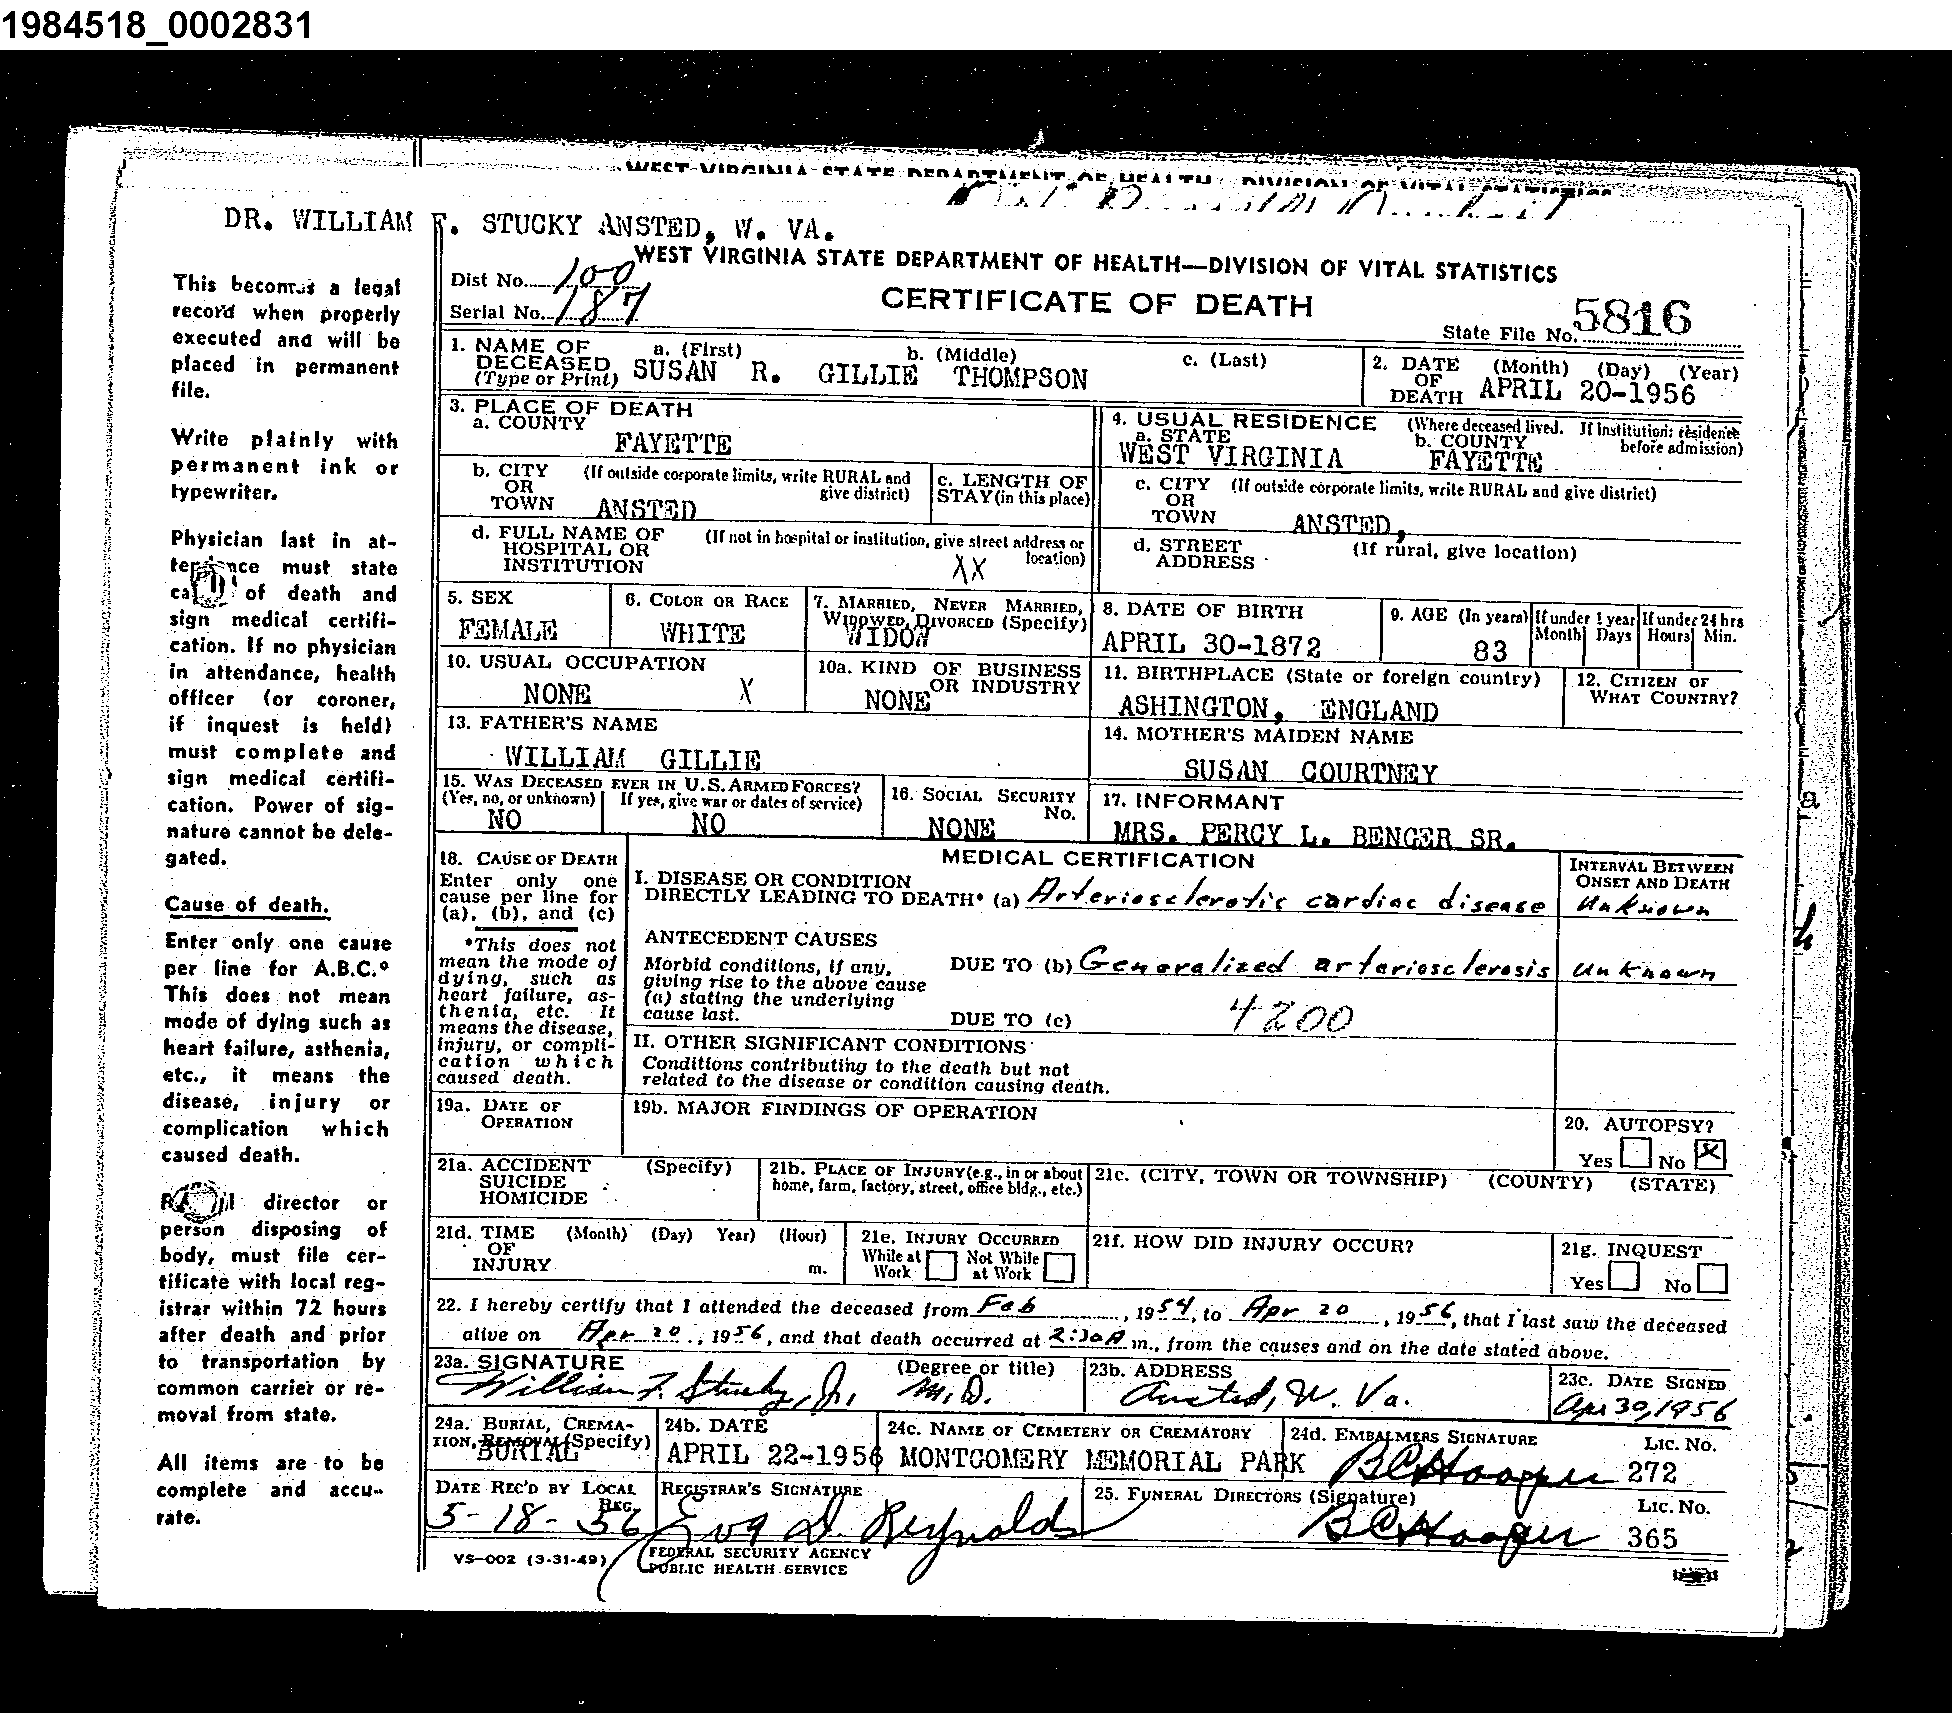 1984518_0002831
WEST VIRGINIA STATE DEPARTMENT OF HEALTH DIVISION OF VITAL STATISTICS
DR. WILLIAM F. STUCKY ANSTED, W. VA.
WEST VIRGINIA STATE DEPARTMENT OF HEALTH—DIVISION OF VITAL STATISTICS
Dist No. 100
CERTIFICATE OF DEATH
Serial No. 187
State File No. 5816
This becomes a legal
record when properly
executed and will be
placed in permanent
file.
Write plainly with
permanent ink or
typewriter.
Physician last in at-
tendance must state
of death and
sign medical certifi-
cation. If no physician
in attendance, health
officer (or coroner,
if inquest is held)
must complete and
sign medical certifi-
cation. Power of sig-
nature cannot be dele-
gated.
Cause of death.
Enter only one cause
per line for A.B.C.*
This does not mean
mode of dying such as
heart failure, asthenia,
etc., it means the
disease, injury or
complication which
caused death.
director or
person disposing of
body, must file cer-
tificate with local reg-
istrar within 72 hours
after death and prior
to transportation by
common carrier or re-
moval from state.
All items are to be
complete and accu-
rate.
1. NAME OF DECEASED (Type or Print) a. (First) b. (Middle) c. (Last)
SUSAN R. GILLIE THOMPSON
2. DATE OF DEATH (Month) (Day) (Year)
APRIL 20-1956
3. PLACE OF DEATH
a. COUNTY
FAYETTE
4. USUAL RESIDENCE (Where deceased lived. If institution: residence before admission)
a. STATE b. COUNTY
WEST VIRGINIA FAYETTE
b. CITY OR TOWN (If outside corporate limits, write RURAL and give district)
ANSTED
c. LENGTH OF STAY (in this place)
c. CITY OR TOWN (If outside corporate limits, write RURAL and give district)
ANSTED,
d. FULL NAME OF HOSPITAL OR INSTITUTION (If not in hospital or institution, give street address or location)
XX
d. STREET ADDRESS (If rural, give location)
5. SEX
FEMALE
6. COLOR OR RACE
WHITE
7. MARRIED, NEVER MARRIED, WIDOWED, DIVORCED (Specify)
WIDOW
8. DATE OF BIRTH
APRIL 30-1872
9. AGE (In years) If under 1 year Month Days If under 24 hrs Hours Min.
83
10. USUAL OCCUPATION
NONE X
10a. KIND OF BUSINESS OR INDUSTRY
NONE
11. BIRTHPLACE (State or foreign country)
ASHINGTON, ENGLAND
12. CITIZEN OF WHAT COUNTRY?
13. FATHER'S NAME
WILLIAM GILLIE
14. MOTHER'S MAIDEN NAME
SUSAN COURTNEY
15. WAS DECEASED EVER IN U.S. ARMED FORCES?
(Yes, no, or unknown) If yes, give war or dates of service)
NO NO
16. SOCIAL SECURITY No.
NONE
17. INFORMANT
MRS. PERCY L. BENGER SR.
18. CAUSE OF DEATH
Enter only one
cause per line for
(a), (b), and (c)
*This does not
mean the mode of
dying, such as
heart failure, as-
thenia, etc. It
means the disease,
injury, or compli-
cation which
caused death.
MEDICAL CERTIFICATION
INTERVAL BETWEEN ONSET AND DEATH
I. DISEASE OR CONDITION
DIRECTLY LEADING TO DEATH* (a) Arteriosclerotic cardiac disease Unknown
ANTECEDENT CAUSES
Morbid conditions, if any,
giving rise to the above cause
(a) stating the underlying
cause last.
DUE TO (b) Generalized arteriosclerosis Unknown
DUE TO (c)
4200
II. OTHER SIGNIFICANT CONDITIONS
Conditions contributing to the death but not
related to the disease or condition causing death.
19a. DATE OF OPERATION
19b. MAJOR FINDINGS OF OPERATION
20. AUTOPSY?
Yes No X
21a. ACCIDENT SUICIDE HOMICIDE (Specify)
21b. PLACE OF INJURY (e.g., in or about home, farm, factory, street, office bldg., etc.)
21c. (CITY, TOWN OR TOWNSHIP) (COUNTY) (STATE)
21d. TIME OF INJURY (Month) (Day) Year) (Hour) m.
21e. INJURY OCCURRED
While at Work Not While at Work
21f. HOW DID INJURY OCCUR?
21g. INQUEST
Yes No
22. I hereby certify that I attended the deceased from Feb, 1954, to Apr 20, 1956, that I last saw the deceased
alive on Apr 20, 1956, and that death occurred at 2:20A m., from the causes and on the date stated above.
23a. SIGNATURE (Degree or title)
William F. Stucky, Jr. M.D.
23b. ADDRESS
Ansted, W. Va.
23c. DATE SIGNED
Apr 30, 1956
24a. BURIAL, CREMATION, REMOVAL (Specify)
BURIAL
24b. DATE
APRIL 22-1956
24c. NAME OF CEMETERY OR CREMATORY
MONTGOMERY MEMORIAL PARK
24d. EMBALMERS SIGNATURE LIC. NO.
BC Hooper 272
DATE REC'D BY LOCAL REG.
5-18-56
REGISTRAR'S SIGNATURE
Eva D. Reynolds
25. FUNERAL DIRECTORS (Signature) LIC. NO.
BC Hooper 365
VS-002 (3-31-49)
FEDERAL SECURITY AGENCY
PUBLIC HEALTH SERVICE